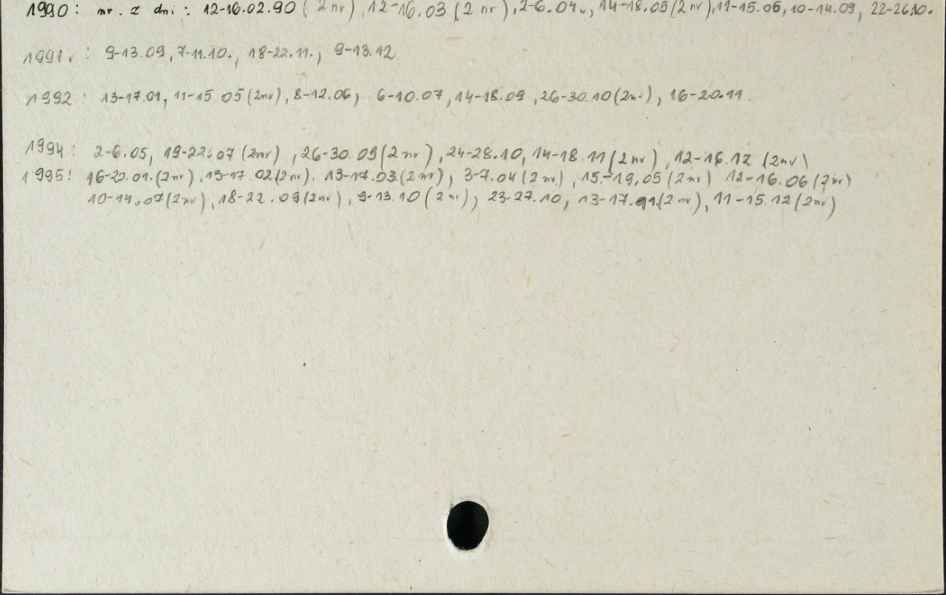 1990: nr. z dni: 12-16.02.90 (2 nr), 12-16.03 (2 nr), 2-6.04., 14-18.05 (2 nr), 11-15.06, 10-14.09, 22-26.10.
1991.: 9-13.09, 7-11.10., 18-22.11., 9-13.12
1992: 13-17.01, 11-15.05 (2nr), 8-12.06, 6-10.07, 14-18.09, 26-30.10 (2nr), 16-20.11.
1994: 2-6.05, 19-22.07 (2nr), 26-30.09 (2nr), 24-28.10, 14-18.11 (2nr), 12-16.12 (2nr)
1995: 16-20.01. (2nr), 13-17.02 (2nr). 13-17.03 (2nr), 3-7.04 (2nr), 15-19.05 (2nr) 12-16.06 (2nr)
10-14.07 (2nr), 18-22.09 (2nr), 9-13.10 (2nr), 23-27.10, 13-17.11 (2nr), 11-15.12 (2nr)